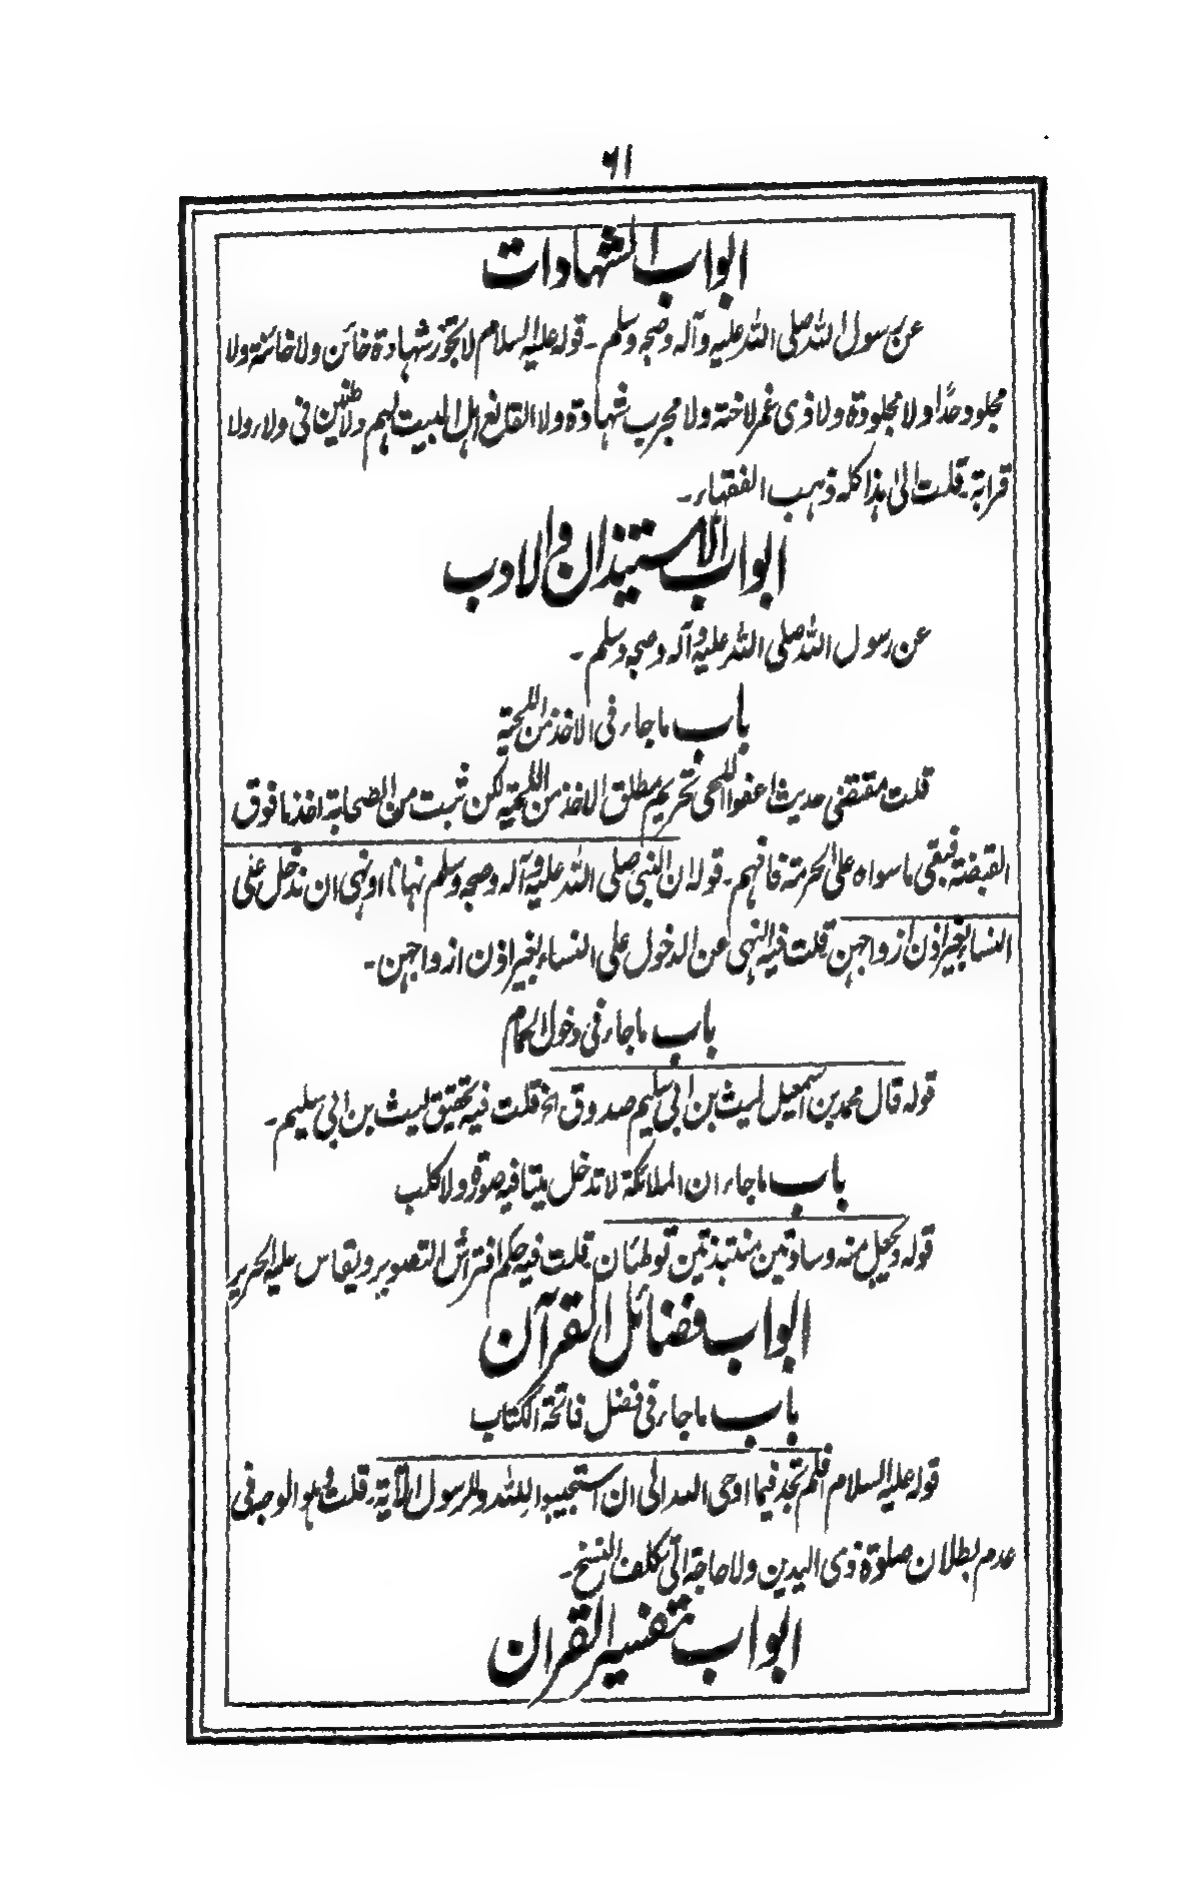 ٦١
ابواب الشهادات
عن رسول الله صلى الله عليه وآله وصحبه وسلم ـ قوله عليه السلام لا تجوز شهادة خائن ولا خائنة ولا
مجلود حدًا ولا مجلودة ولا ذى غمر لاخته ولا مجرب شهادة ولا القانع اهل البيت لهم ولا ظنين فى ولاء ولا
قرابة قلت الىٰ هذا كله ذهب الفقهاء ـ
ابواب الاستيذان والادب
عن رسول الله صلى الله عليه وآله وصحبه وسلم ـ
باب ماجاء فى الاخذ من اللحية
قلت مقتضى حديث اعفوا اللحى تحريم مطلق الاخذ من اللحية لكن ثبت من الصحابة اخذ ما فوق
القبضة فبقى ما سواه على الحرمة فافهم ـ قوله ان النبى صلى الله عليه وآله وصحبه وسلم نهانا او نهى ان ندخل على
النساء بغير اذن ازواجهن قلت فيه النهى عن الدخول على النساء بغير اذن ازواجهن ـ
باب ماجاء فى دخول الحمام
قوله قال محمد بن اسمعيل ليث بن ابى سليم صدوق الخ قلت فيه تحقيق ليث بن ابى سليم ـ
باب ماجاء ان الملائكة لا تدخل بيتا فيه صورة ولا كلب
قوله ويجعل منه وسادتين منتبذتين توطئان قلت فيه حكم افتراش التصوير ويقاس عليه الحرير
ابواب فضائل القرآن
باب ماجاء فى فضل فاتحة الكتاب
قوله عليه السلام فلم تجد فيما اوحى الله الى ان استجيبوا لله وللرسول الآية ـ قلت هو الوجه فى
عدم بطلان صلوة ذى اليدين ولا حاجة الى تكلف النسخ ـ
ابواب تفسير القران